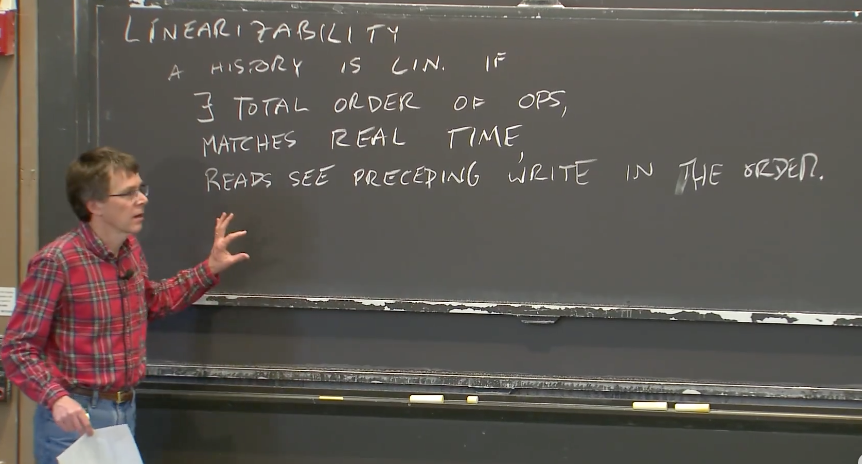 LINEARIZABILITY
A HISTORY IS LIN. IF
∃ TOTAL ORDER OF OPS,
MATCHES REAL TIME,
READS SEE PRECEDING WRITE IN THE ORDER.